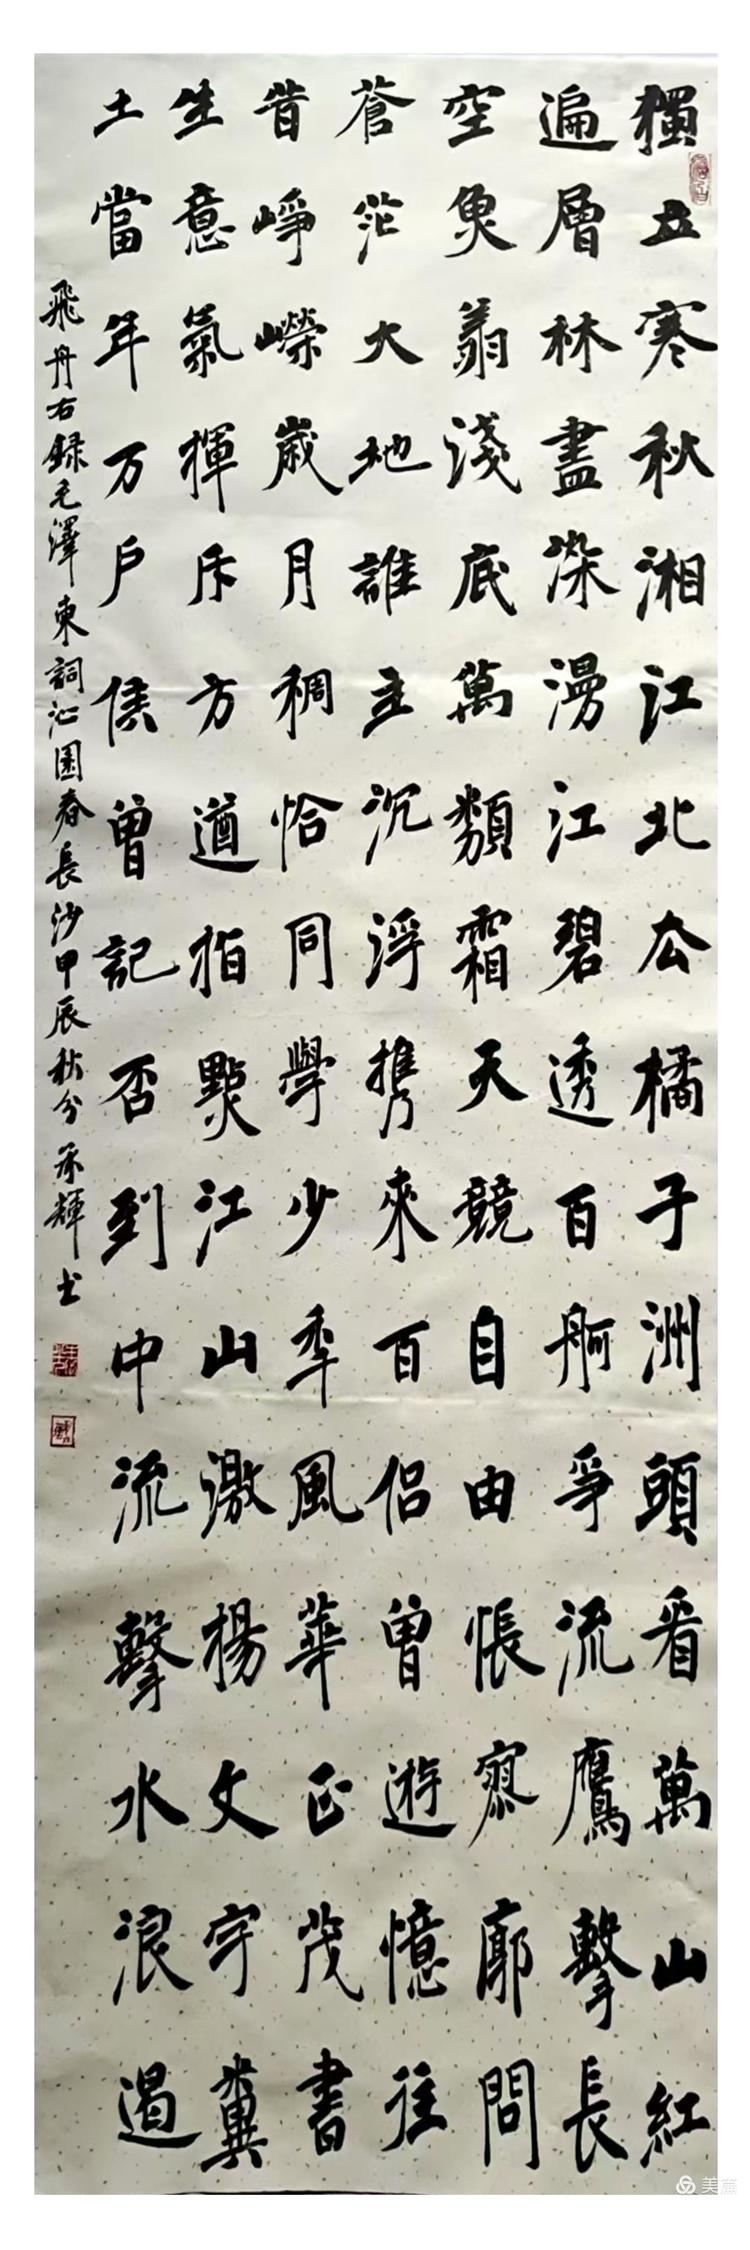 獨立寒秋湘江北去橘子洲頭看萬山紅
遍層林盡染漫江碧透百舸爭流鷹擊長
空魚翔淺底萬類霜天競自由悵寥廓問
蒼茫大地誰主沉浮携來百侣曾遊憶往
昔崢嶸歲月稠恰同學少年風華正茂書
生意氣揮斥方遒指點江山激揚文字糞
土當年万戶侯曾記否到中流擊水浪遏
飛舟右録毛澤東詞沁園春長沙甲辰秋分承輝书
美篇